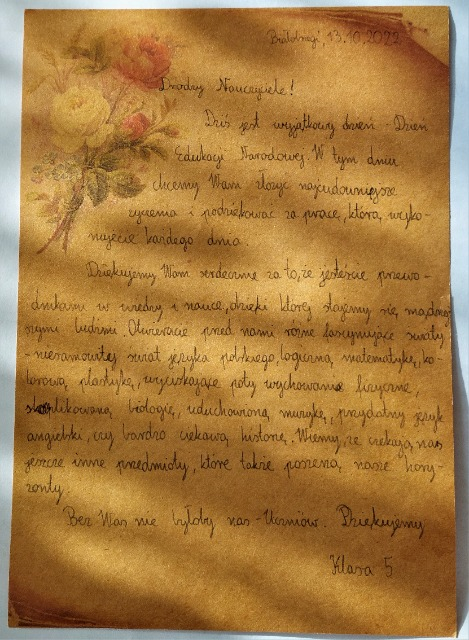 Białobrzegi, 13.10.2022
Drodzy Nauczyciele!
Dziś jest wyjątkowy dzień - Dzień
Edukacji Narodowej. W tym dniu
chcemy Wam złożyć najcudowniejsze
życzenia i podziękować za pracę, którą wyko-
nujecie każdego dnia.
Dziękujemy Wam serdecznie za to, że jesteście przewo-
dnikami w wiedzy i nauce, dzięki której stajemy się mądrzej
szymi ludźmi. Otwieracie przed nami różne fascynujące światy
- niesamowity świat języka polskiego, logiczną matematykę, ko-
lorową plastykę, wyciskające poty wychowanie fizyczne,
skomplikowaną biologię, uduchowioną muzykę, przydatny język
angielski, czy bardzo ciekawą historię. Wiemy, że czekają nas
jeszcze inne przedmioty, które także poszerzą nasze hory-
zonty.
Bez Was nie byłoby nas - Uczniów. Dziękujemy
Klasa 5